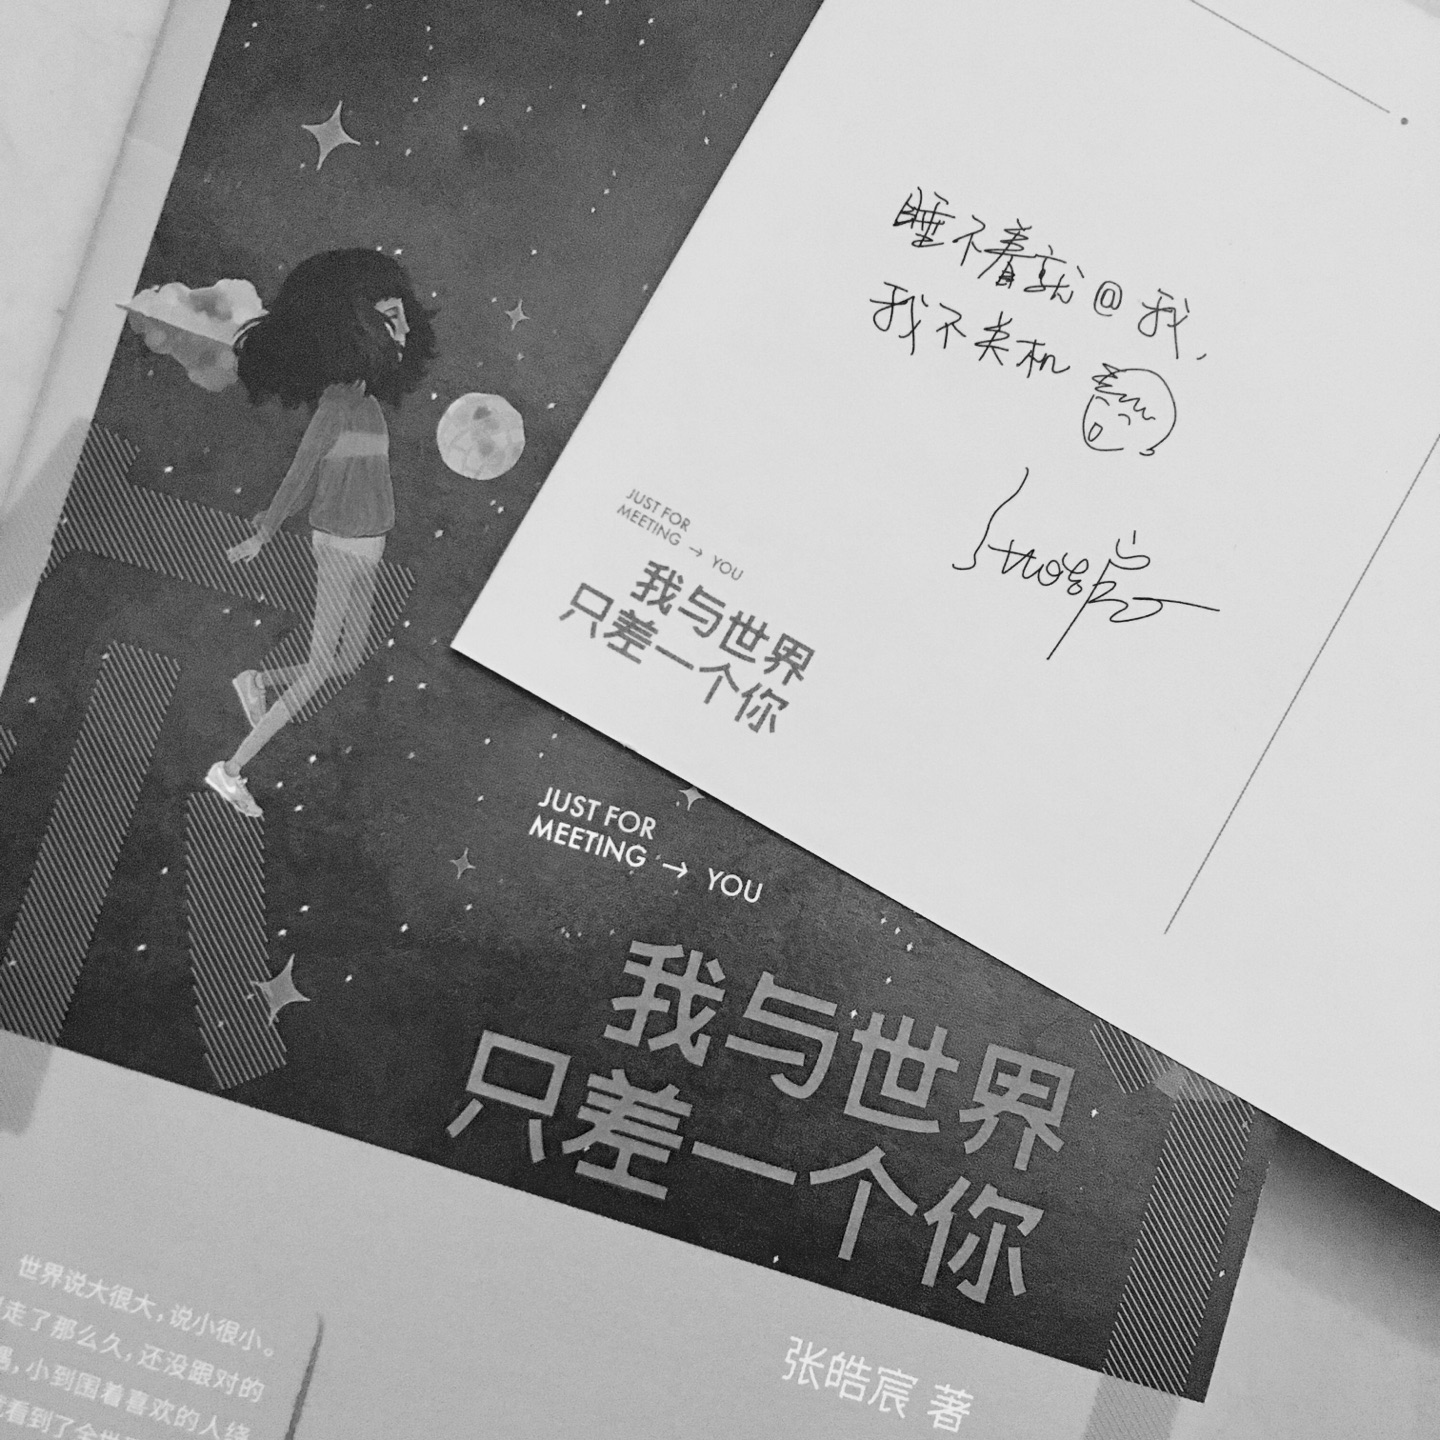 睡不着就@我,
我不关机
JUST FOR
MEETING → YOU
我与世界
只差一个你
JUST FOR
MEETING → YOU
我与世界
只差一个你
张皓宸 著
世界说大很大,说小很小。
走了那么久,还没跟对的
遇,小到围着喜欢的人绕
看到了全世